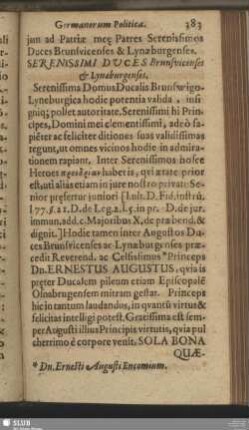 Germanorum Politica. 383
jun ad Patriæ meę Patres Serenissimos
Duces Brunsvicenses & Lynæburgenses.
SERENISSIMI DUCES Brunsvicenses
& Lynæburgenses.
Serenissima Domus Ducalis Brunswigo-
Lyneburgica hodie potentiâ validâ, in-
signiq; pollet autoritate. Serenissimi hi Prin-
cipes, Domini mei clementissimi, adeò sa-
pièter ac feliciter ditiones suas validissimas
regunt, ut omnes vicinos hodie in admira-
tionem rapiant. Inter Serenissimos hosce
Heroes habetis, qui ætate prior
est, uti alias etiam in jure nostro privato Se-
nior præfertur juniori
in
immun. add. c. Majoribus X. de præbend. &
dignit.] Hodie tamen inter Augustos Du-
ces Brunsvicenses ac Lynæburgenses præ-
cedit Reverend. ac Celsissimus * Princeps
Dn. ERNESTUS AUGUSTUS, quia is
pręter Ducalem pileum etiam Episcopalē
Osnabrugensem mitram gestat. Princeps
hic in tantum laudandus, in quantū virtus &
felicitas intelligi potest. Gratissima est sem-
per Augusti illius Principis virtutis, quia pul
cherrimo è corpore venit. SOLA BONA
QUÆ-
* Dn. Ernesti Augusti Encomium.
SLUB